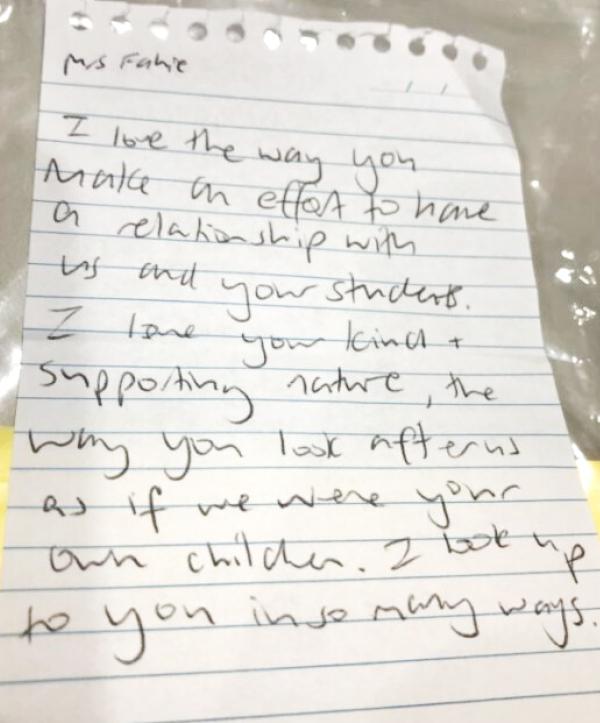 Mrs Fahie
/ /
I love the way you
Make an effort to have
a relationship with
us and your students.
I love your kind +
supporting nature, the
way you look after us
as if we were your
own children. I look up
to you in so many ways.